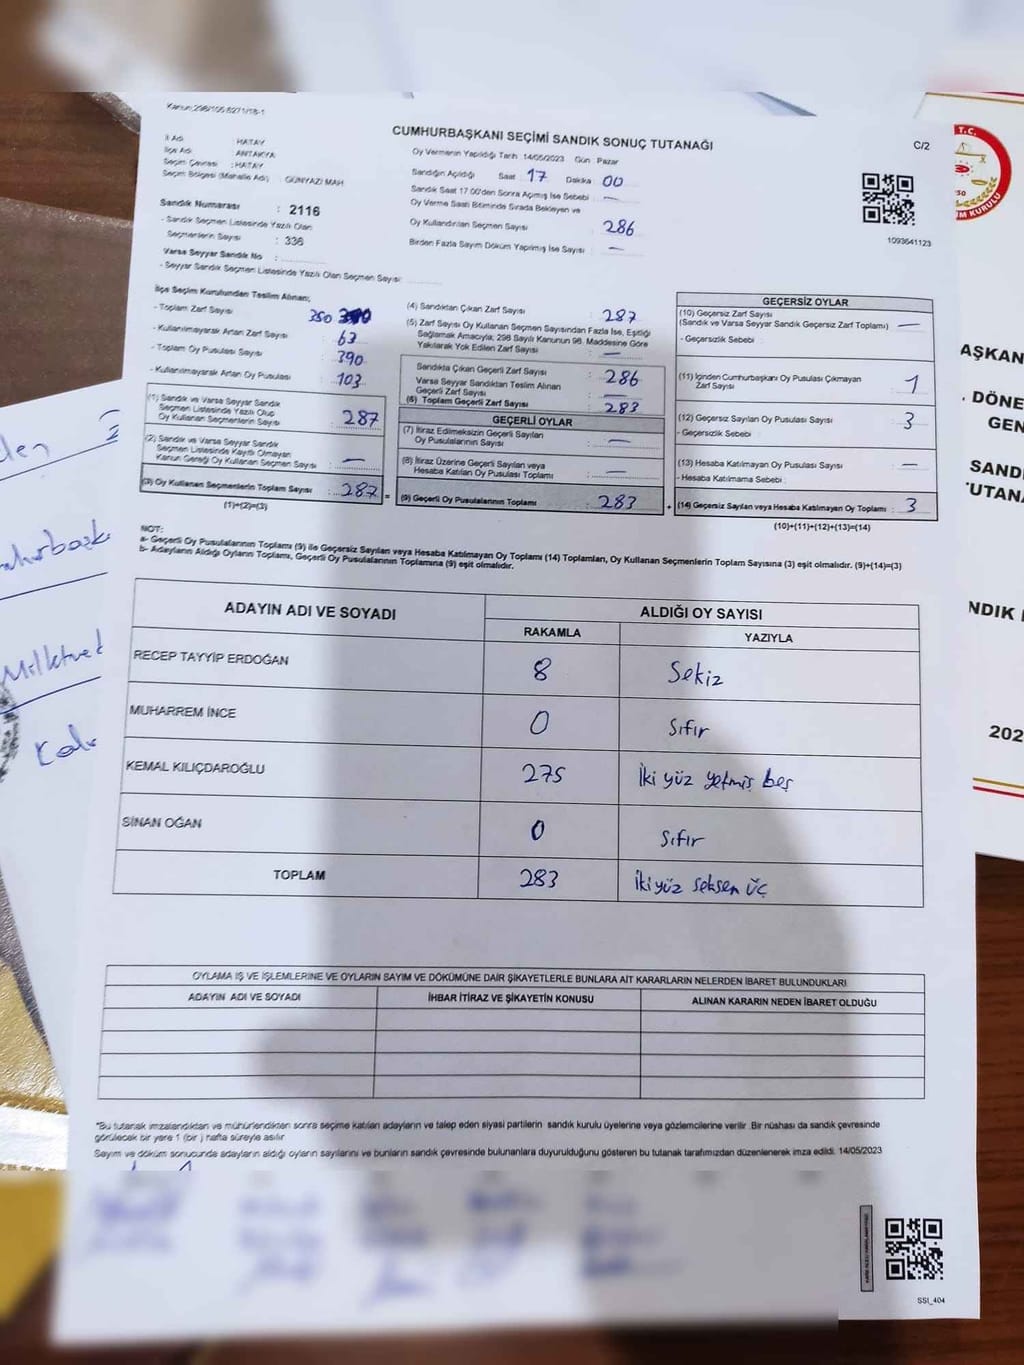 Kanun:298/100 6271/18-1
CUMHURBAŞKANI SEÇİMİ SANDIK SONUÇ TUTANAĞI
C/2
İl Adı : HATAY
İlçe Adı : ANTAKYA
Seçim Çevresi : HATAY
Seçim Bölgesi (Mahalle Adı) : GÜNYAZI MAH
Oy Vermenin Yapıldığı Tarih :14/05/2023 Gün Pazar
Sandığın Açıldığı Saat : 17 Dakika 00
Sandık Saat 17.00'den Sonra Açımış İse Sebebi : —
Oy Verme Saati Bitiminde Sırada Bekleyen ve
Oy Kullandırılan Seçmen Sayısı : 286
Birden Fazla Sayım Döküm Yapılmış İse Sayısı : —
1093641123
Sandık Numarası : 2116
- Sandık Seçmen Listesinde Yazılı Olan
Seçmenlerin Sayısı : 336
Varsa Seyyar Sandık No :
- Seyyar Sandık Seçmen Listesinde Yazılı Olan Seçmen Sayısı:
İlçe Seçim Kurulundan Teslim Alınan;
- Toplam Zarf Sayısı 350
- Kullanılmayarak Artan Zarf Sayısı : 63
- Toplam Oy Pusulası Sayısı : 390
- Kullanılmayarak Artan Oy Pusulası : 103
(1) Sandık ve Varsa Seyyar Sandık
Seçmen Listesinde Yazılı Olup
Oy Kullanan Seçmenlerin Sayısı : 287
(2) Sandık ve Varsa Seyyar Sandık
Seçmen Listesinde Kayıtlı Olmayan
Kanun Gereği Oy Kullanan Seçmen Sayısı : —
(3) Oy Kullanan Seçmenlerin Toplam Sayısı : 287 =
(1)+(2)=(3)
(4) Sandıktan Çıkan Zarf Sayısı : 287
(5) Zarf Sayısı Oy Kullanan Seçmen Sayısından Fazla İse, Eşitliği
Sağlamak Amacıyla; 298 Sayılı Kanunun 98. Maddesine Göre
Yakılarak Yok Edilen Zarf Sayısı : —
Sandıkta Çıkan Geçerli Zarf Sayısı : 286
Varsa Seyyar Sandıktan Teslim Alınan
Geçerli Zarf Sayısı : —
(6) Toplam Geçerli Zarf Sayısı : 283
GEÇERLİ OYLAR
(7) İtiraz Edilmeksizin Geçerli Sayılan
Oy Pusulalarının Sayısı : —
(8) İtiraz Üzerine Geçerli Sayılan veya
Hesaba Katılan Oy Pusulası Toplamı : —
(9) Geçerli Oy Pusulalarının Toplamı : 283 +
GEÇERSİZ OYLAR
(10) Geçersiz Zarf Sayısı
(Sandık ve Varsa Seyyar Sandık Geçersiz Zarf Toplamı) —
- Geçersizlik Sebebi :
(11) İçinden Cumhurbaşkanı Oy Pusulası Çıkmayan
Zarf Sayısı : 1
(12) Geçersiz Sayılan Oy Pusulası Sayısı : 3
- Geçersizlik Sebebi :
(13) Hesaba Katılmayan Oy Pusulası Sayısı : —
- Hesaba Katılmama Sebebi :
(14) Geçersiz Sayılan veya Hesaba Katılmayan Oy Toplamı : 3
(10)+(11)+(12)+(13)=(14)
NOT:
a- Geçerli Oy Pusulalarının Toplamı (9) ile Geçersiz Sayılan veya Hesaba Katılmayan Oy Toplamı (14) Toplamları, Oy Kullanan Seçmenlerin Toplam Sayısına (3) eşit olmalıdır. (9)+(14)=(3)
b- Adayların Aldığı Oyların Toplamı, Geçerli Oy Pusulalarının Toplamına (9) eşit olmalıdır.
ADAYIN ADI VE SOYADI ALDIĞI OY SAYISI
RAKAMLA YAZIYLA
RECEP TAYYİP ERDOĞAN 8 Sekiz
MUHARREM İNCE 0 Sıfır
KEMAL KILIÇDAROĞLU 275 İki yüz yetmiş beş
SİNAN OĞAN 0 Sıfır
TOPLAM 283 İki yüz seksen üç
OYLAMA İŞ VE İŞLEMLERİNE VE OYLARIN SAYIM VE DÖKÜMÜNE DAİR ŞİKAYETLERLE BUNLARA AİT KARARLARIN NELERDEN İBARET BULUNDUKLARI
ADAYIN ADI VE SOYADI İHBAR İTİRAZ VE ŞİKAYETİN KONUSU ALINAN KARARIN NEDEN İBARET OLDUĞU
*Bu tutanak imzalandıktan ve mühürlendikten sonra seçime katılan adayların ve talep eden siyasi partilerin sandık kurulu üyelerine veya gözlemcilerine verilir .Bir nüshası da sandık çevresinde
görülecek bir yere 1 (bir ) hafta süreyle asılır
Sayım ve döküm sonucunda adayların aldığı oyların sayılarını ve bunların sandık çevresinde bulunanlara duyurulduğunu gösteren bu tutanak tarafımızdan düzenlenerek imza edildi. 14/05/2023
SSI_404
T.C.
AŞKAN
DÖNE
GEN
SANDI
TUTANA
NDIK
202